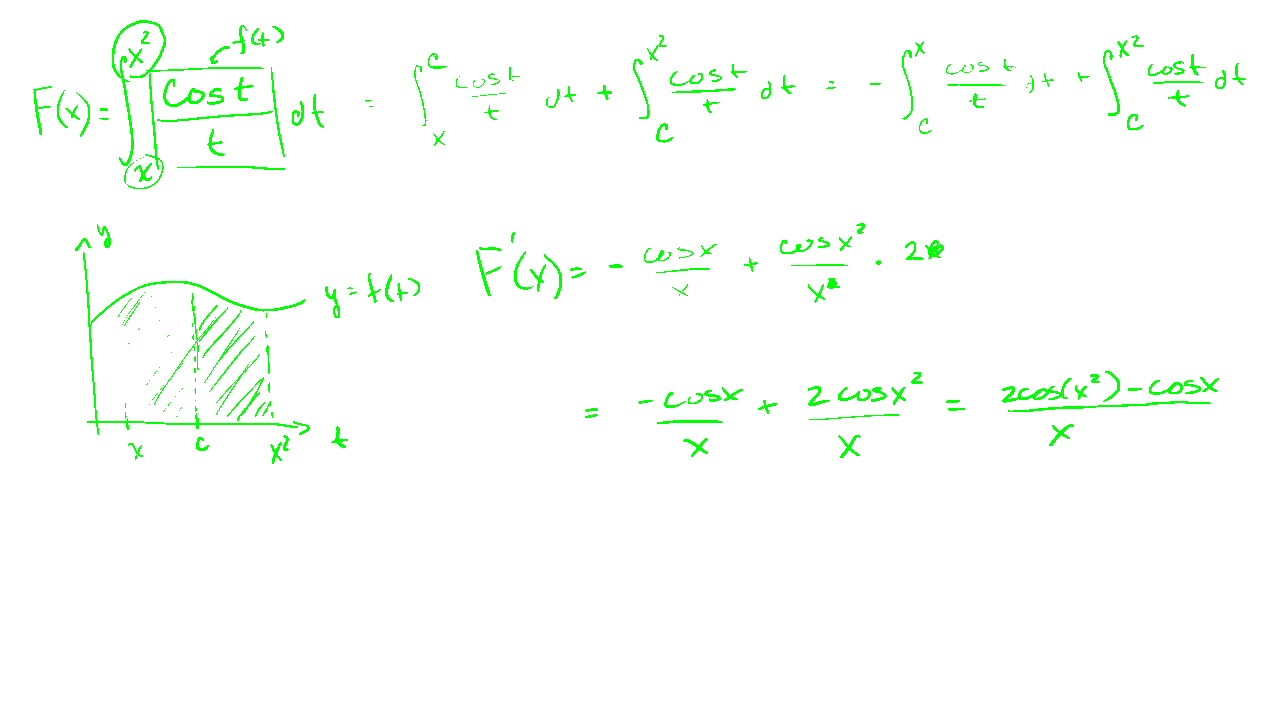 f(t)
F(x) = ∫_x^{x²} cos t / t dt = ∫_x^c cos t / t dt + ∫_c^{x²} cos t / t dt = - ∫_c^x cos t / t dt + ∫_c^{x²} cos t / t dt
y
y = f(t)
x c x² t
F'(x) = - cos x / x + cos x² / x² · 2x
= -cos x / x + 2 cos x² / x = 2cos(x²) - cos x / x